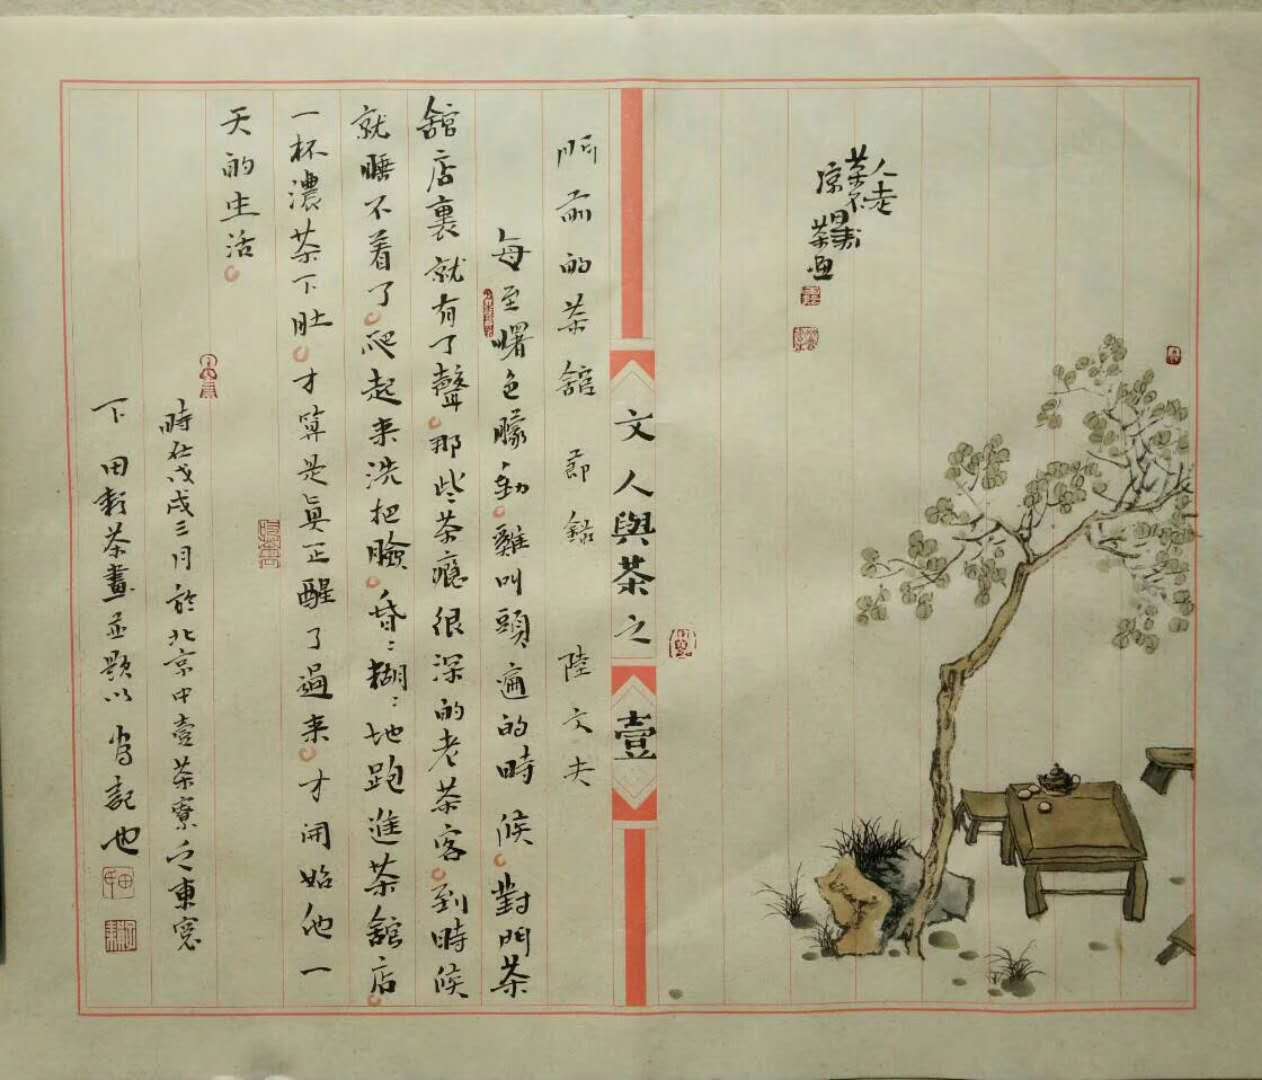 人走
茶不
涼
田耕
茶画
文人與茶之 壹
門前的茶館 節錄 陸文夫
每至曙色朦動。雞叫頭遍的時候。對門茶
館店裏就有了聲。那些茶癮很深的老茶客。到時候
就睡不着了。爬起来洗把臉。昏:糊:地跑進茶館店。
一杯濃茶下肚。才算是真正醒了過来。才開始他一
天的生活。
時在戊戌三月於北京中壹茶寮之東窗
下 田耕茶畫並題以為記也